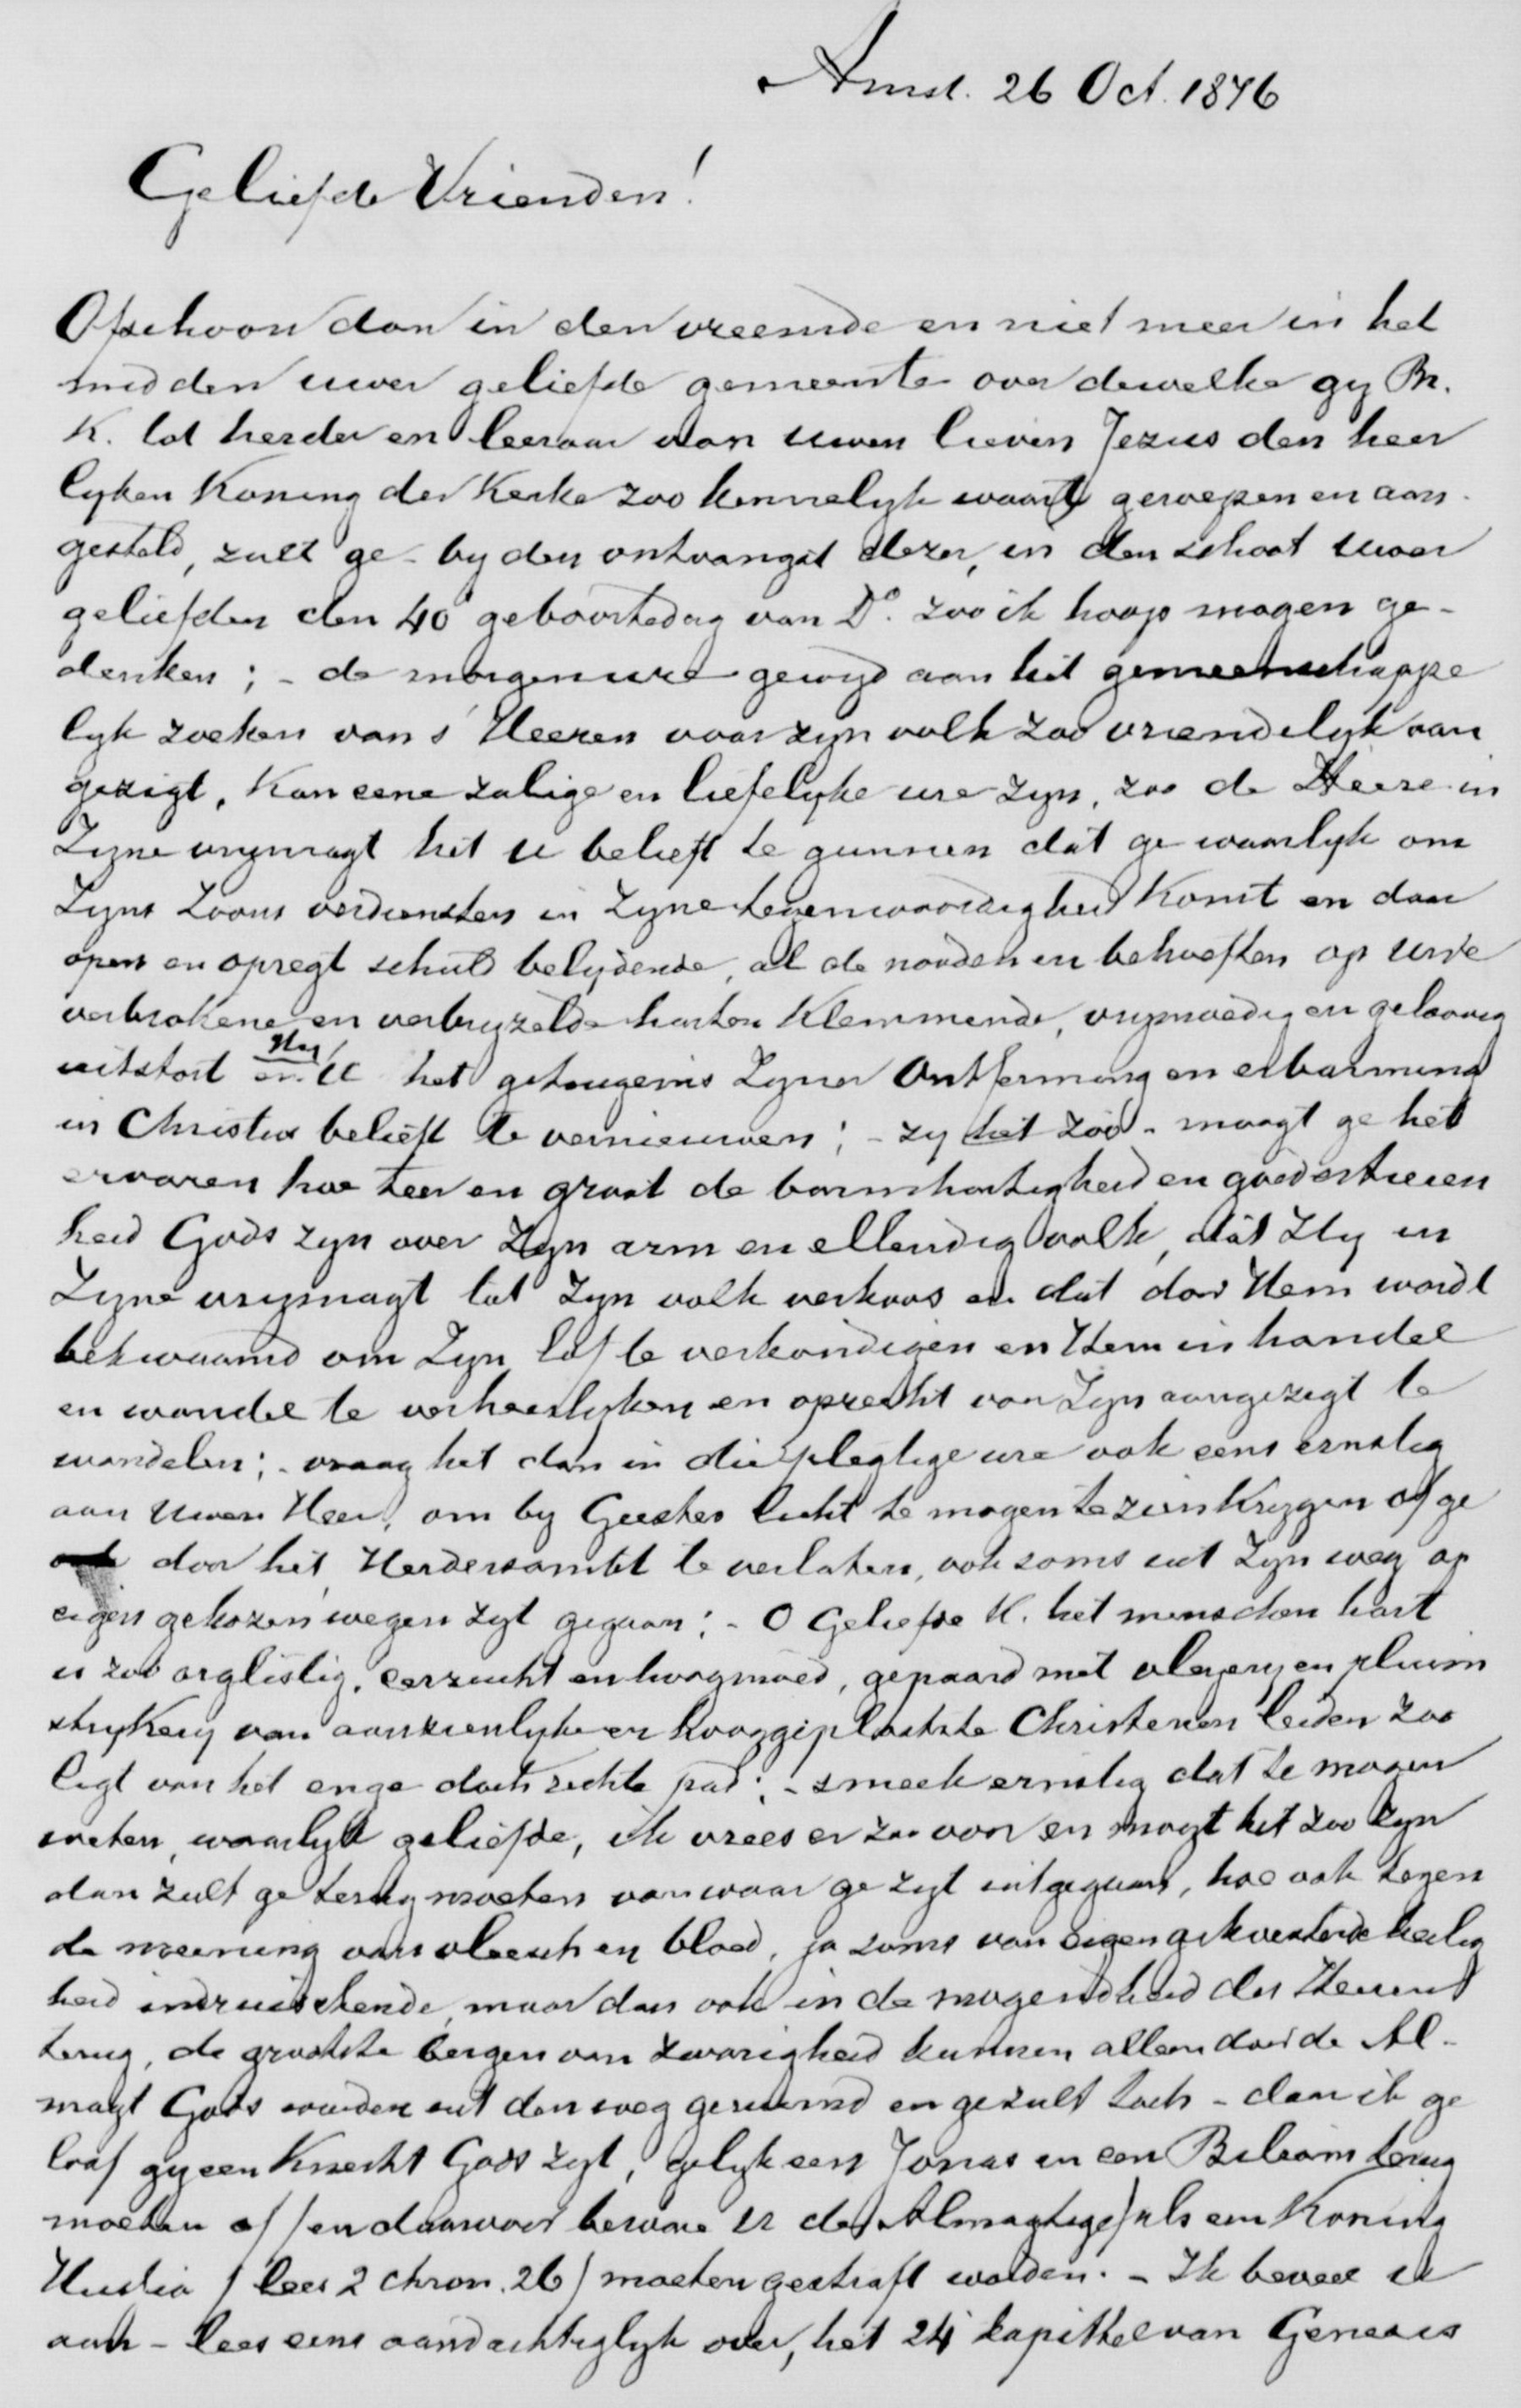 Amst. 26 Oct. 1876
Geliefde Vrienden!
Ofschoon dan in den vreemde en niet meer in het
midden uwer geliefde gemeente over dewelke gy Br.
K. tot herder en leeraar van uwen lieven Jezus den heer
lyken Koning der Kerke zoo kennelyk waart geroepen en aan-
gesteld, zult ge - by den ontvangst dezer, in den schoot uwer
geliefden den 40e geboortedag van Do. zoo ik hoop mogen ge-
denken; - de morgenure gewyd aan het gemeenschappe
lyk zoeken van s' Heeren voor zyn volk zoo vriendelyk aan
gezigt, kan eene zalige en liefelyke ure zyn, zoo de Heere in
Zyne vrymagt het u belieft te gunnen dat ge waarlyk om
Zyns Zoons verdiensten in Zyne tegenwoordigheid komt en daar
open en opregt schuld belydende, al de nooden en behoeften op uwe
verbrokene en verbryzelde harten klemmende, vrymoedig en geloovig
uitstort en Hy U het getuigenis Zyner Ontferming en erbarming
in Christus belieft te vernieuwen; - zy het zoo - moogt ge het
ervaren hoe teer en groot de barmhartigheid en goedertieren
heid Gods zyn over Zyn arm en ellendig volk, dat Hy in
Zyne vrymagt tot Zyn volk verkoos en dat door Hem wordt
bekwaamd om Zyn lof te verkondigen en Hem in handel
en wandel te verheerlyken en oprecht voor Zyn aangezigt te
wandelen; - vraag het dan in die plegtige ure ook eens ernstig
aan Uwen Heer, om by Geestes licht te mogen te zien krygen of ge
door het Herdersambt te verlaten, ook soms uit Zyn weg op
eigen gekozen wegen zyt gegaan; - O Geliefde K. het menschen hart
is zoo arglistig, eerzucht en hoogmoed, gepaard met vleyery en pluim
strykery van aanzienlyke en hooggeplaatste Christenen leiden zoo
ligt van het enge doch rechte pad; - smeek ernstig dat te mogen
weten, waarlyk geliefde, ik vrees er zoo voor en mogt het zoo zyn
dan zult ge terug moeten van waar ge zyt uitgegaan, hoe ook tegen
de meening van vleesch en bloed, ja soms van eigen gekoesterde heilig
heid indruischende, maar dan ook in de mogendheid des Heeren
terug, de grootste bergen van zwarigheid kunnen alleen door de Al-
magt Gods worden uit den weg geruimd en ge zult toch - daar ik ge
loof gy een Knecht Gods zyt, gelyk een Jonas en een Bileam terug
moeten of / en daarvoor beware U de Almagtige / als een Koning
Hustia / lees 2 Chron. 26 / moeten gestraft worden. - Ik beveel u
aan - lees eens aandachtiglyk over, het 24e kapittel van Genesis